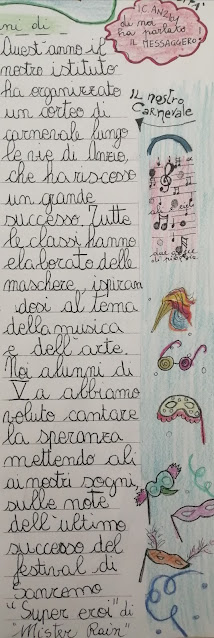 ni di _ _
IC ANZIO V
di noi
ha parlato
IL MESSAGGERO!
Quest'anno il
nostro istituto
ha organizzato
un corteo di
carnevale lungo
le vie di Anzio,
che ha riscosso
un grande
successo. Tutte
le classi hanno
elaborato delle
maschere, ispiran
dosi al tema
della musica
e dell'arte.
Noi alunni di
V a abbiamo
voluto cantare
la speranza
mettendo ali
ai nostri sogni,
sulle note
dell'ultimo
successo del
festival di
Sanremo
"Super eroi" di
"Mister Rain"
IL nostro
Carnevale